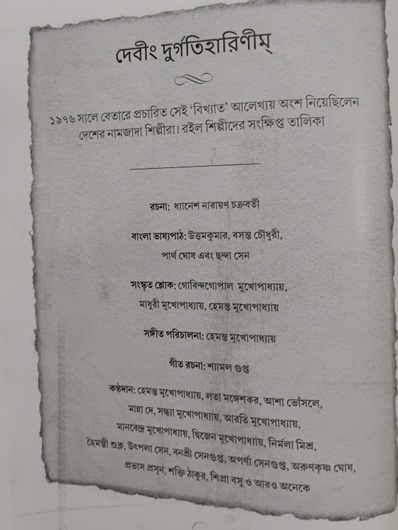 দেবীং দুর্গতিহারিণীম্
১৯৭৬ সালে বেতারে প্রচারিত সেই ‘বিখ্যাত’ আলেখ্যয় অংশ নিয়েছিলেন
দেশের নামজাদা শিল্পীরা। রইল শিল্পীদের সংক্ষিপ্ত তালিকা
রচনা: ধ্যানেশ নারায়ণ চক্রবর্তী
বাংলা ভাষ্যপাঠ: উত্তমকুমার, বসন্ত চৌধুরী,
পার্থ ঘোষ এবং ছন্দা সেন
সংস্কৃত শ্লোক: গোবিন্দগোপাল মুখোপাধ্যায়,
মাধুরী মুখোপাধ্যায়, হেমন্ত মুখোপাধ্যায়
সঙ্গীত পরিচালনা: হেমন্ত মুখোপাধ্যায়
গীত রচনা: শ্যামল গুপ্ত
কণ্ঠদান: হেমন্ত মুখোপাধ্যায়, লতা মঙ্গেশকর, আশা ভোঁসলে,
মান্না দে, সন্ধ্যা মুখোপাধ্যায়, আরতি মুখোপাধ্যায়,
মানবেন্দ্র মুখোপাধ্যায়, দ্বিজেন মুখোপাধ্যায়, নির্মলা মিশ্র,
হৈমন্তী শুক্ল, উৎপলা সেন, বনশ্রী সেনগুপ্ত, অপর্ণা সেনগুপ্ত, অরুণকৃষ্ণ ঘোষ,
প্রভাস প্রসূন, শক্তি ঠাকুর, শিপ্রা বসু ও আরও অনেকে